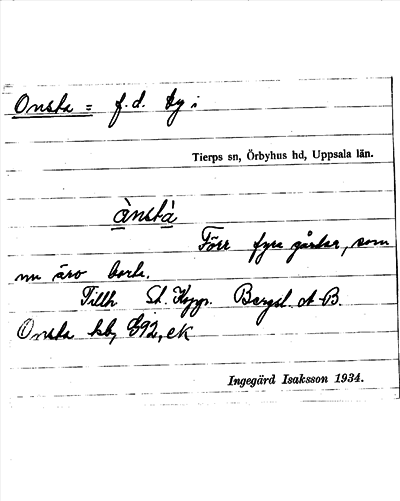 Onsta = f.d. by i
Tierps sn, Örbyhus hd, Uppsala län.
ànstà
Förr fyra gårdar, som
nu äro borta.
Tillh St. Kopp. Bergsl. A-B.
Onsta kb, E92, ek
Ingegärd Isaksson 1934.